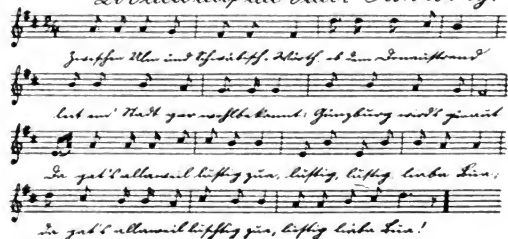 Zwischen Ulm und Schwäbisch-Wörth ob dem Donaustrand
leit em' Stadt gar wohlbekannt: Günzburg wird's genannt
Da geht's allaweil lustig zua, lustig, lustig liaba Bua;
da geht's allaweil luschtig zua, lustig liaba Bua!